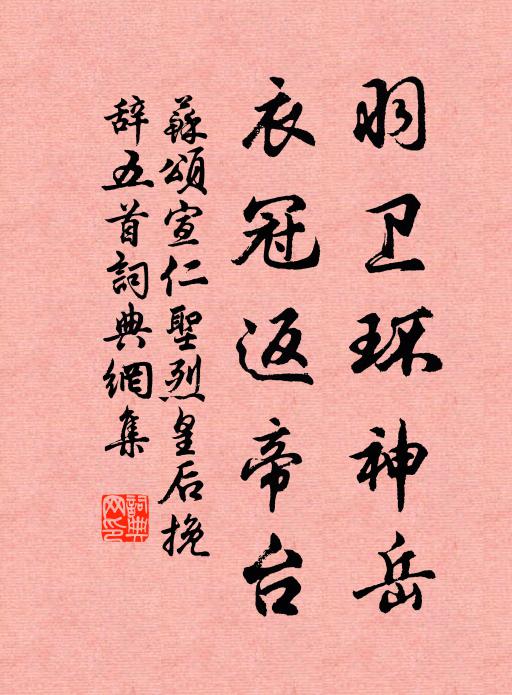 羽卫环神岳
衣冠返帝台
蘇頌宣仁聖烈皇后挽
辞五首詞典網集
詞典网印